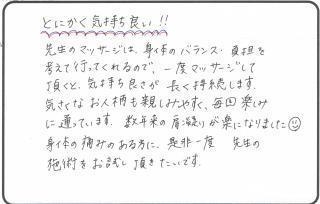 とにかく気持ち良い!!
先生のマッサージは、身体のバランス・負担を
考えて行ってくれるので、一度マッサージして
頂くと、気持ち良さが長く持続します。
気さくなお人柄も親しみやすく、毎回楽しみ
に通っています。数年来の肩凝りが楽になりました
身体の痛みのある方に、是非一度 先生の
施術をお試し頂きたいです。